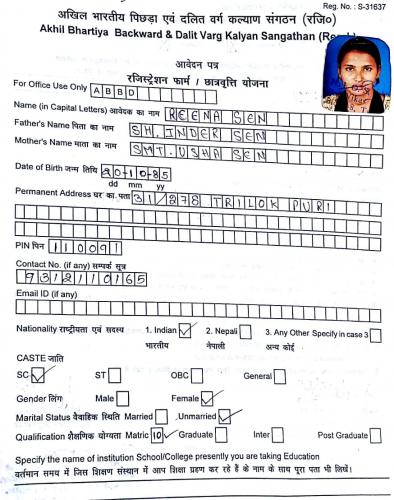 Reg. No. : S-31637
अखिल भारतीय पिछड़ा एवं दलित वर्ग कल्याण संगठन (रजि०)
Akhil Bhartiya Backward & Dalit Varg Kalyan Sangathan
आवेदन पत्र
रजिस्ट्रेशन फार्म / छात्रवृत्ति योजना
For Office Use Only ABBD
Name (in Capital Letters) आवेदक का नाम REENA SEN
Father's Name पिता का नाम SH. INDER SEN
Mother's Name माता का नाम SMT. USHA SEN
Date of Birth जन्म तिथि 20-10-85
dd mm yy
Permanent Address घर का पता 31/278 TRILOK PURI
PIN पिन 110091
Contact No. (if any) सम्पर्क सूत्र
9312110165
Email ID (if any)
Nationality राष्ट्रीयता एवं सदस्य 1. Indian ✓ 2. Nepali 3. Any Other Specify in case 3
भारतीय नेपाली अन्य कोई
CASTE जाति
SC ✓ ST OBC General
Gender लिंग Male Female ✓
Marital Status वैवाहिक स्थिति Married Unmarried ✓
Qualification शैक्षणिक योग्यता Matric 10 ✓ Graduate Inter Post Graduate
Specify the name of institution School/College presently you are taking Education
वर्तमान समय में जिस शिक्षण संस्थान में आप शिक्षा ग्रहण कर रहे हैं के नाम के साथ पूरा पता भी लिखें।